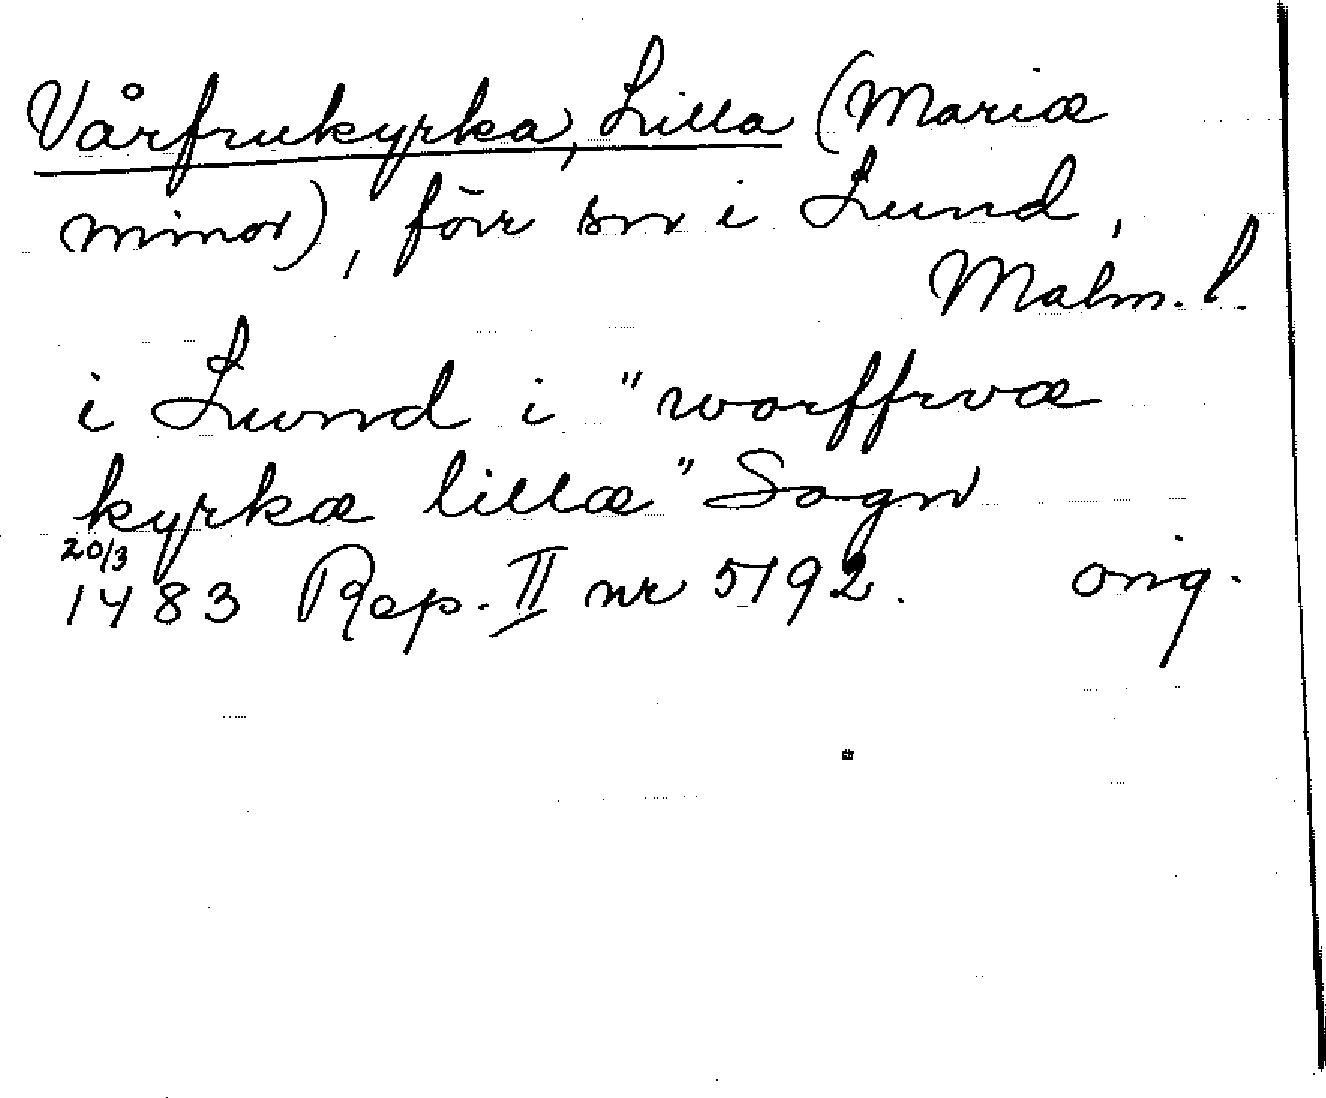 Vårfrukyrka, Lilla (Mariæ
minor), förr sn i Lund,
Malm. l.
i Lund i "worffrvæ
kyrkæ lillæ" Sogn
20/3
1483 Rep. II nr 5192. orig.